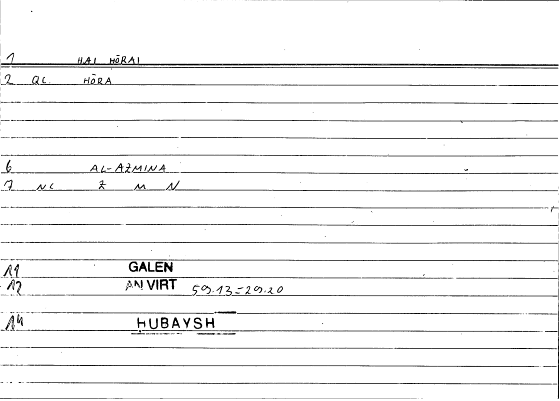 1 HAI HŌRAI
2 QL. HŌRA
6 AL-AZMINA
7 NL Z M N
11 GALEN
12 AN VIRT 59.13=29.20
14 ḤUBAYSH